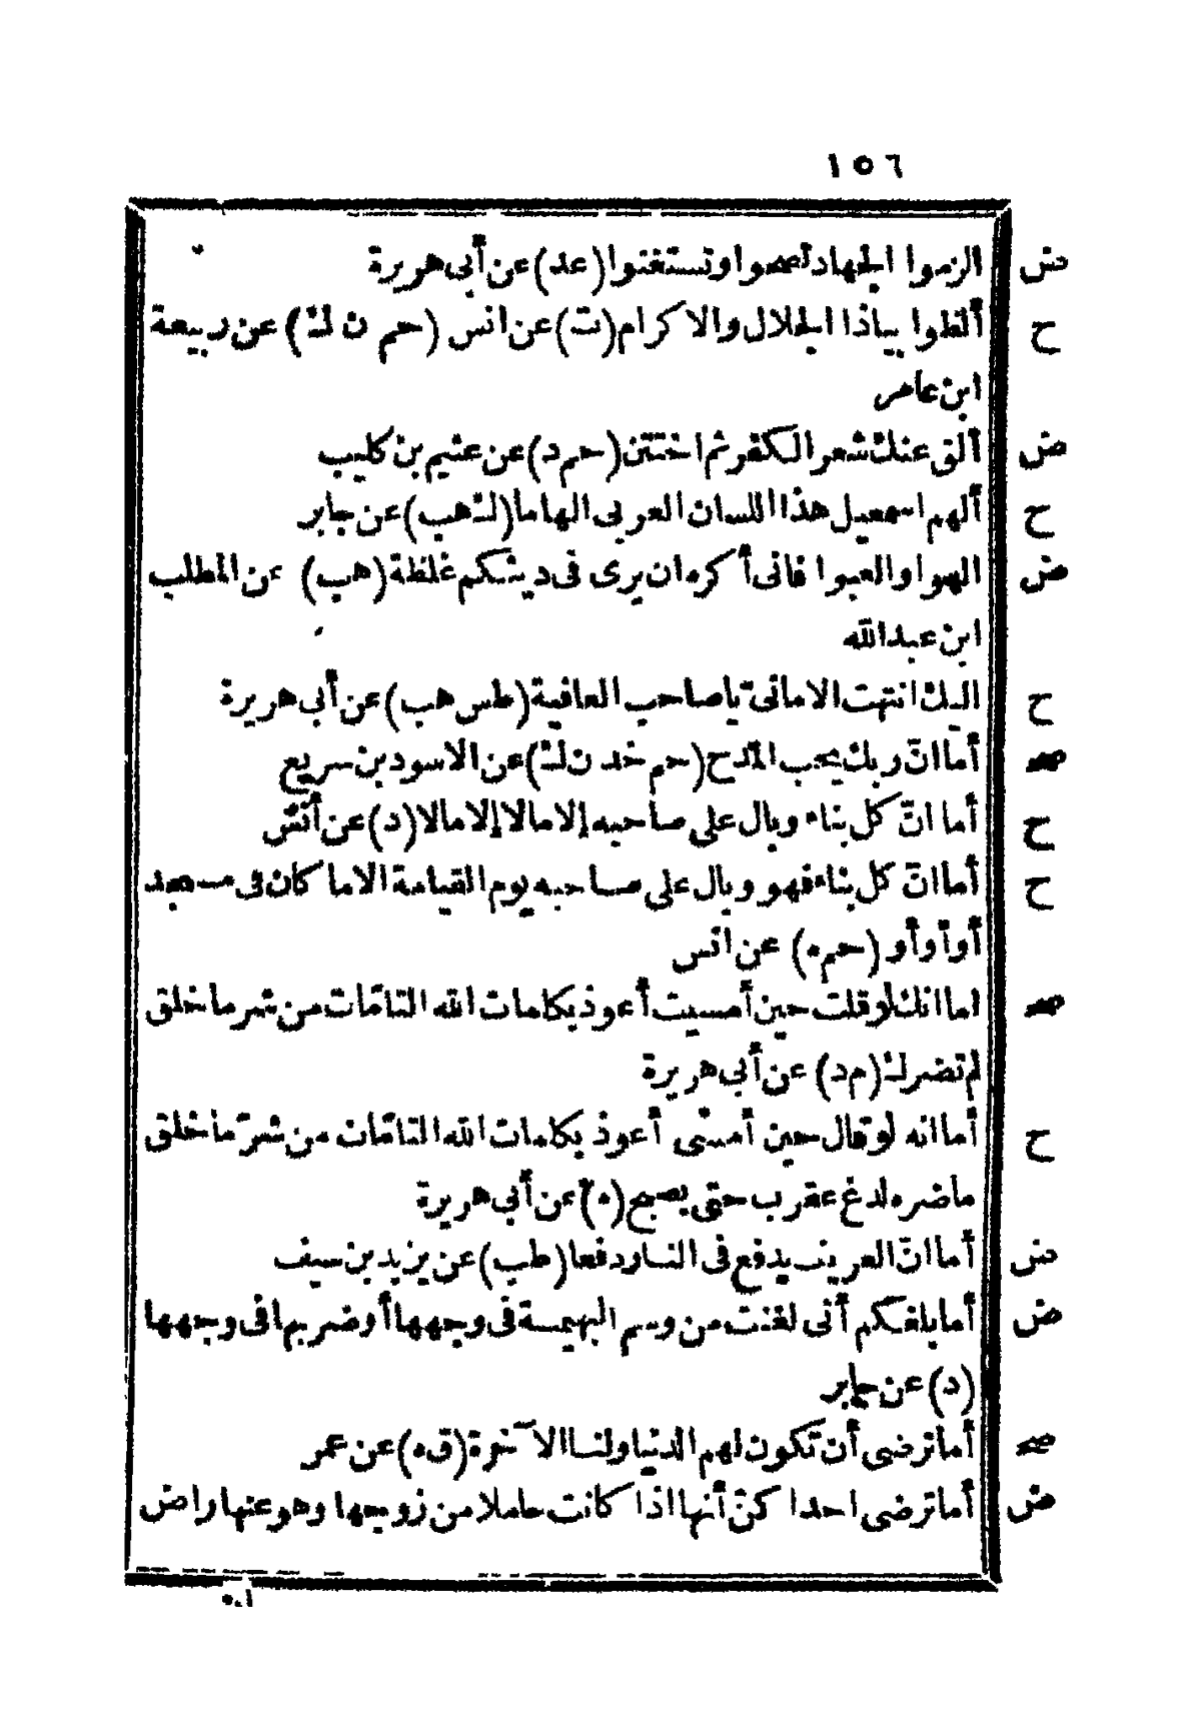 ١٥٦
ض الزموا الجهاد تصحوا وتستغنوا (عد) عن أبى هريرة
ح ألظوا بياذا الجلال والاكرام (ت) عن انس (حم ن ك) عن ربيعة
ابن عامر
ض ألق عنك شعر الكفر ثم اختتن (حم د) عن عثيم بن كليب
ح ألهم اسمعيل هذا اللسان العربى الهاما (ك هب) عن جابر
ض الهوا والعبوا فانى أكره ان يرى فى دينكم غلظة (هب) عن المطلب
ابن عبد الله
ح اليك انتهت الامانى يا صاحب العافية (طس هب) عن أبي هريرة
صح أما انّ ربك يحب المدح (حم خد ن ك) عن الاسود بن سريع
ح أما انّ كل بناء وبال على صاحبه إلا مالا إلا مالا (د) عن أنس
ح أما انّ كل بناء فهو وبال على صاحبه يوم القيامة الا ما كان فى مسجد
أو أو أو (حم ه) عن انس
صح اما انك لو قلت حين أمسيت أعوذ بكلمات الله التامّات من شر ما خلق
لم تضرك (م د) عن أبى هريرة
ح أما انه لو قال حين أمسى أعوذ بكلمات الله التامّات من شرّ ما خلق
ما ضره لدغ عقرب حتى يصبح (ه) عن أبي هريرة
ض أما انّ العريف يدفع فى النار دفعا (طب) عن يزيد بن سيف
ض أما بلغكم أنى لعنت من وسم البهيمة فى وجهها أو ضربها فى وجهها
(د) عن جابر
صح أما ترضى أن تكون لهم الدنيا ولنا الآخرة (ق ه) عن عمر
ض أما ترضى احداكنّ أنها اذا كانت حاملا من زوجها وهو عنها راض